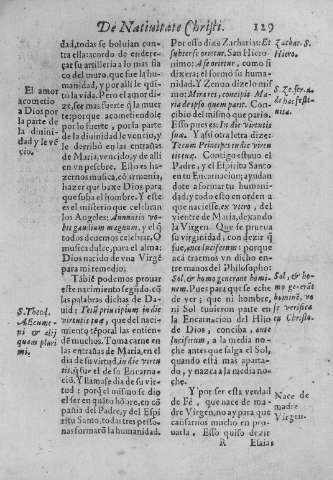 De Natiuitate Christi. 129
dad, todas se boluian con-
tra ella: acordò de endere-
çar su artilleria a lo mas fla
co del muro, que fue la hu-
manidad, y por alli le qui-
tò la vida. Pero el amor di-
ze, ses mas fuerte q̃ la muer
te; porque acometiendole
por lo fuerte, y por la parte
de la diuinidad le venciò, y
le derribò en las entrañas
de Maria, venzido, y de alli
en vn pesebre. Esso es ha-
zernos musica, ò armonia,
hazer que baxe Dios para
que suba el hombre. Y este
es el misterio que celebran
los Angeles: Annuntio vo-
bis gaudium magnum, y el q̃
todos deuemos celebrar. O
musica dulce, para el alma:
Dios nacido de vna Virgẽ
para mi remedio;
Tãbiẽ podemos prouar
este nacimiento segũdo, cõ
las palabras dichas de Da-
uid: Tecũ principium in die
virtutis tuæ, que del naci-
miento tẽporal las entien-
dẽ muchos. Toma carne en
las entrañas de Maria, en el
dia de su virtud, in die virtu-
tis, q̃ fue el de su Encarna-
ciõ. Y llamase dia de su vir-
tud: porq̃ el mismo se dio
el ser en quãto hõbre, en cõ
pañia del Padre, y del Espi
ritu Santo, todas tres perso-
nas formarõ la humanidad.
El amor
acometio
a Dios por
la parte de
la diuini-
dad y le vẽ
ciò.
S. Theod.
AEcume-
ni & alij
quam pluri
mi.
Por esso dixo Zacharias: Et
subter se orietur. San Hiero-
nimo: A se orietur, como si
dixera; el formò su humani-
dad. Y Zenon dize lo mis-
mo: Mirares, concipit Ma-
ria de ipso quem parit. Con-
cibio del mismo que pario.
Esso pues es: In die virtutis
suæ. Y assi otra letra dize:
Tecum Principes in die viven
tiumtuæ. Contigo estuuo el
Padre, y el Espiritu Santo
en tu Encarnacion; ayudan
dote a formar tu humani-
dad; y todo esto en orden a
que naciesse, ex vtero, del
vientre de Maria, dexando
la Virgen. Que se prueua
su virginidad, con dezir q̃
fue, ante luciferum: porque
acà traemos vn dicho en-
tre manos del Philosopho:
Sol, & homo generant homi-
nem. Pues para que se eche
de ver; que ni hombre,
ni Sol tuuieron parte en
la Encarnacion del Hijo
de Dios, conciba, ante
luciferum, a la media no-
che: antes que salga el Sol,
quando està mas aparta-
do, y nazca a la media no-
che.
Y por ser esta verdad
de Fè, que nace de ma-
dre Virgen, no ay para que
cansarnos mucho en pro-
uarla. Esso quiso dezir
Zachar. 8.
Hiero.
Sol, & ho
mo generãt
hominẽ, no
se verifica
en Christo.
Nace de
madre
Virgen.
R Esaias